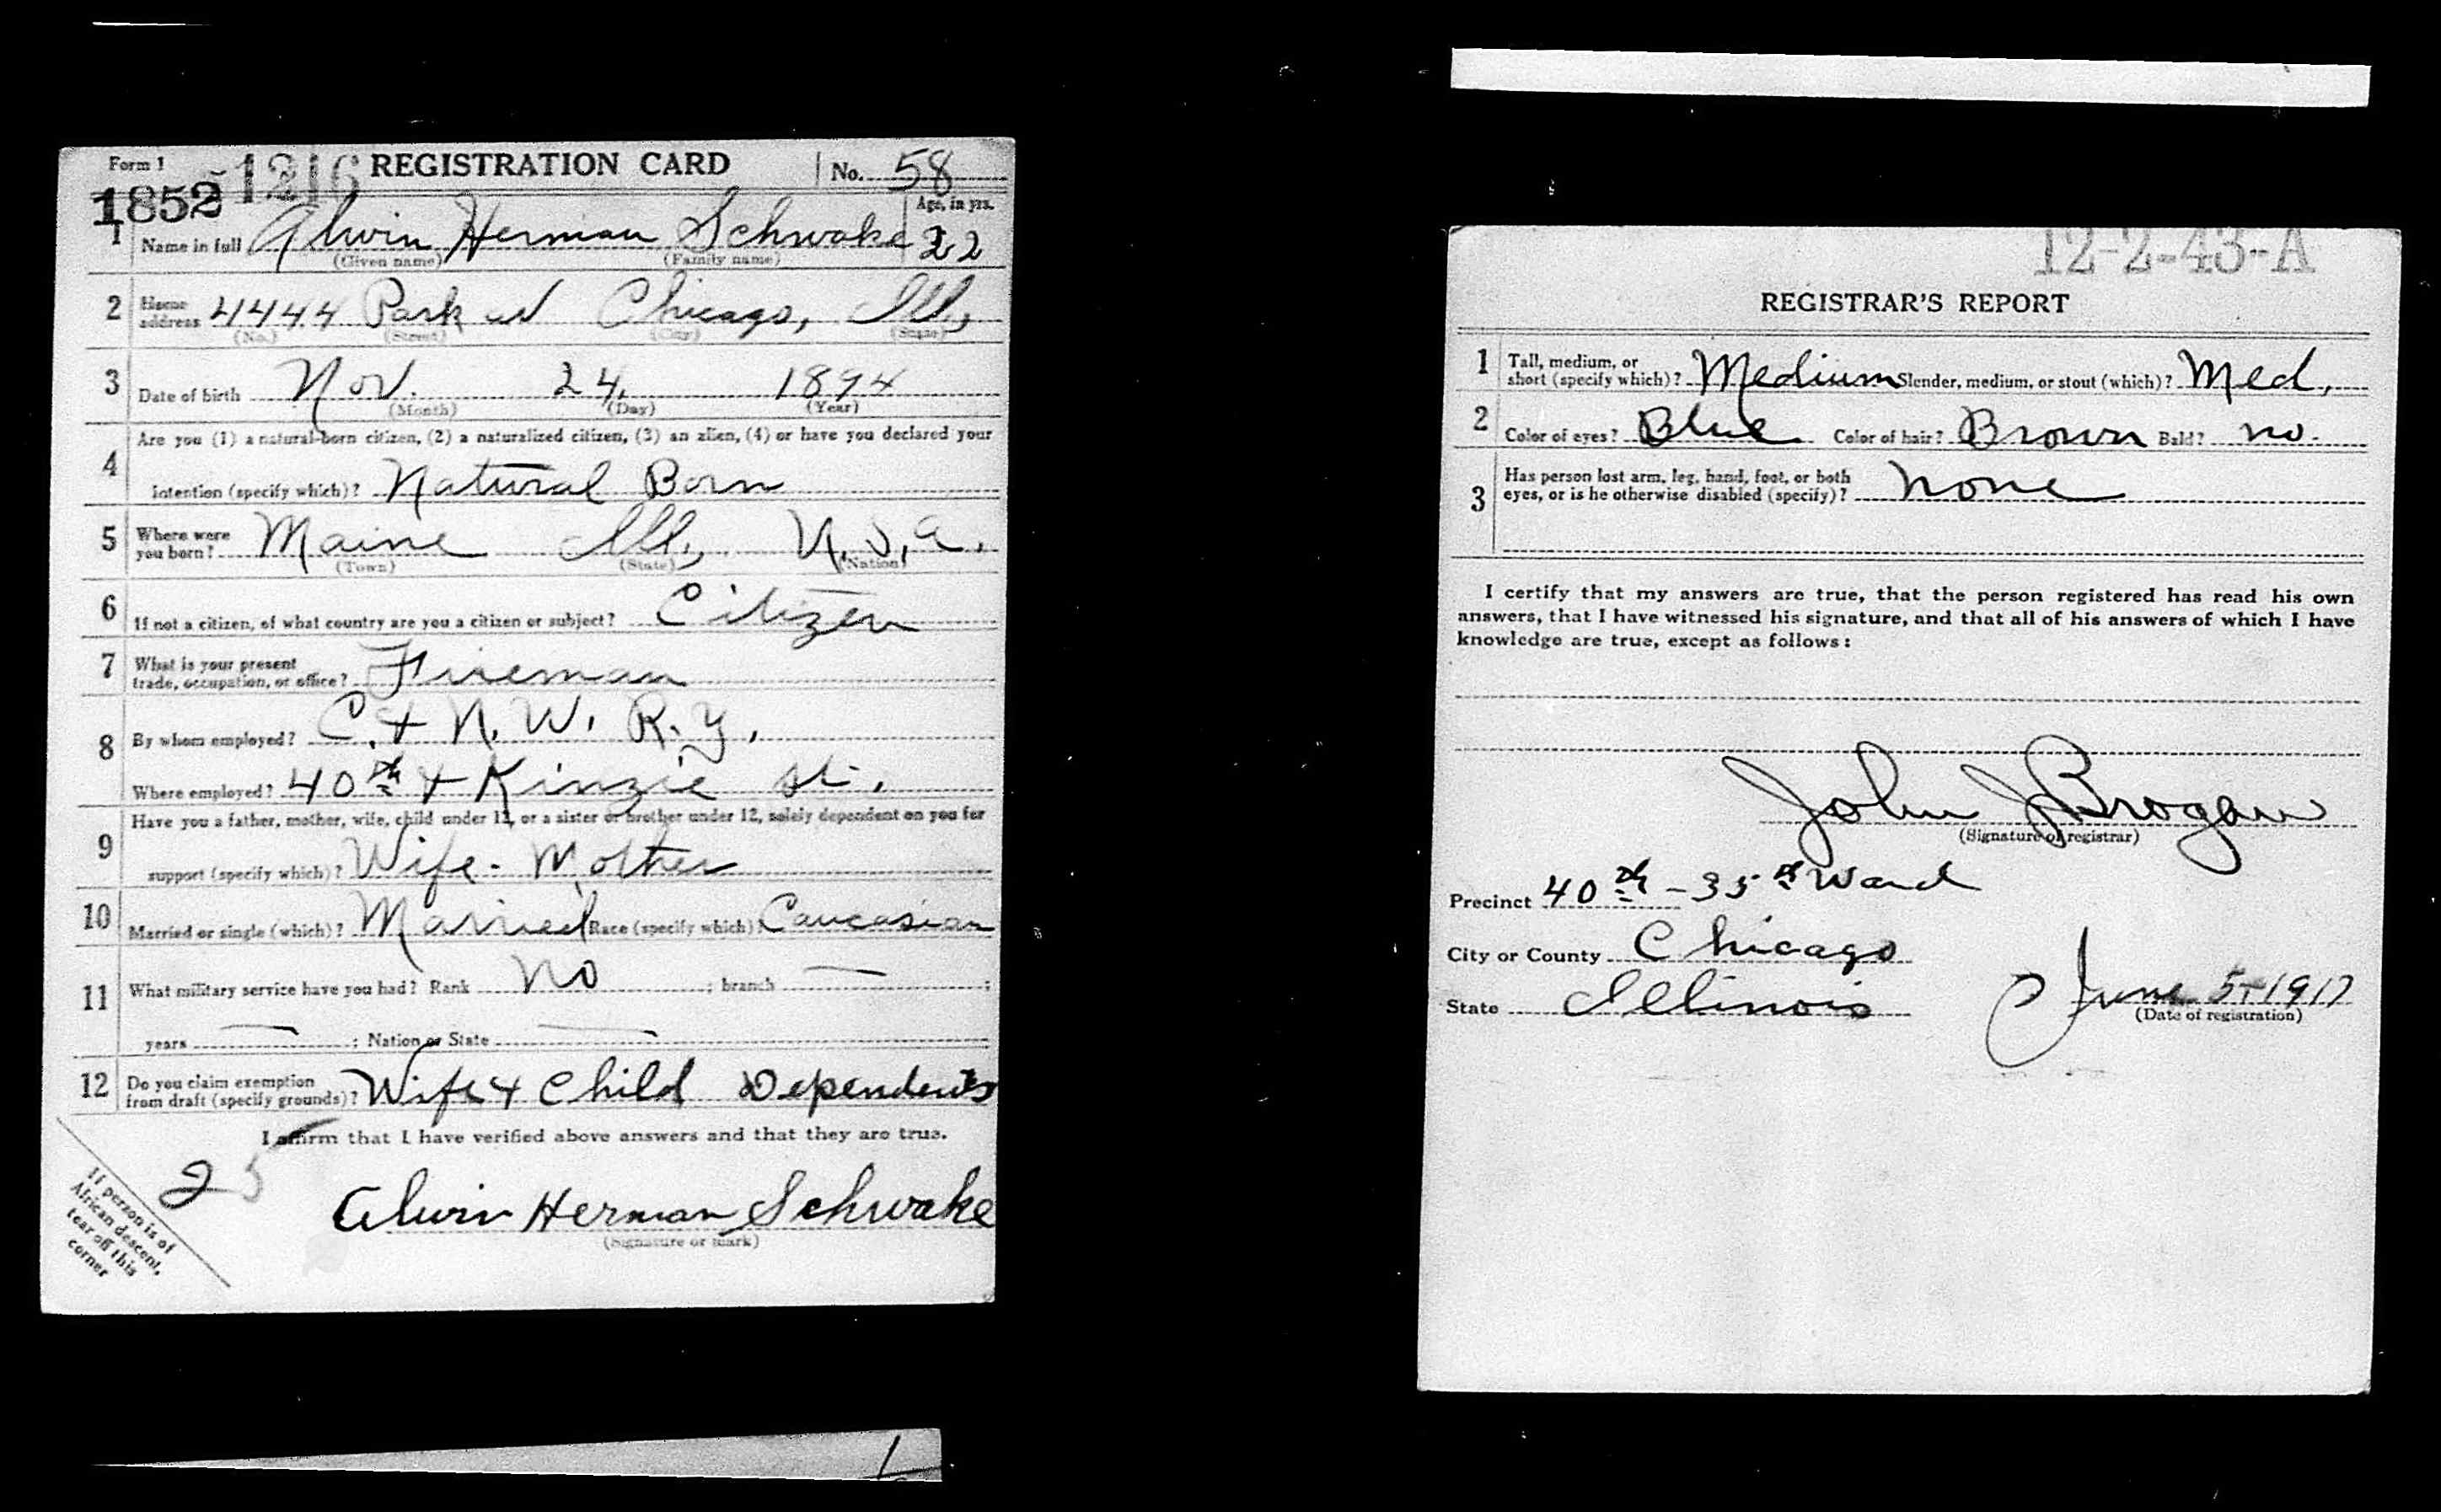 Form 1
1852
1216
REGISTRATION CARD
No. 58
1 Name in full Alwin Herman Schwake
(Given name) (Family name)
Age, in yrs.
22
2 Home address 4444 Park Chicago, Ill,
(No.) (Street) (City) (State)
3 Date of birth Nov. 24, 1894
(Month) (Day) (Year)
4 Are you (1) a natural-born citizen, (2) a naturalized citizen, (3) an alien, (4) or have you declared your
intention (specify which)? Natural Born
5 Where were you born? Maine Ill, U.S.A.
(Town) (State) (Nation)
6 If not a citizen, of what country are you a citizen or subject? Citizen
7 What is your present
trade, occupation, or office? Fireman
8 By whom employed? C. + N. W. R.y.
Where employed? 40th + Kinzie st.
9 Have you a father, mother, wife, child under 12, or a sister or brother under 12, solely dependent on you for
support (specify which)? Wife - Mother
10 Married or single (which)? Married Race (specify which)? Caucasian
11 What military service have you had? Rank No ; branch — ;
years — ; Nation or State —
12 Do you claim exemption
from draft (specify grounds)? Wife + Child Dependents
I affirm that I have verified above answers and that they are true.
25
Alwin Herman Schwake
(Signature or mark)
If person is of
African descent,
tear off this
corner
12-2-43-A
REGISTRAR'S REPORT
1 Tall, medium, or
short (specify which)? Medium Slender, medium, or stout (which)? Med,
2 Color of eyes? Blue Color of hair? Brown Bald? no.
3 Has person lost arm, leg, hand, foot, or both
eyes, or is he otherwise disabled (specify)? none
I certify that my answers are true, that the person registered has read his own
answers, that I have witnessed his signature, and that all of his answers of which I have
knowledge are true, except as follows:
John J Brogan
(Signature of registrar)
Precinct 40th - 35th Ward
City or County Chicago
State Illinois
June 5-1917
(Date of registration)